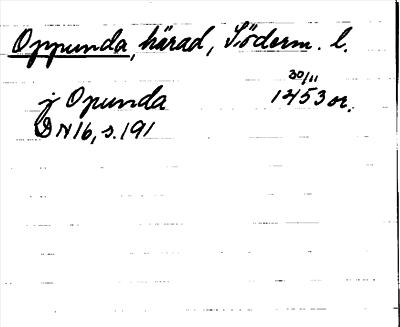 Oppunda, härad, Söderm. l.
30/11
j Opunda 1453 or.
DN16, s. 191